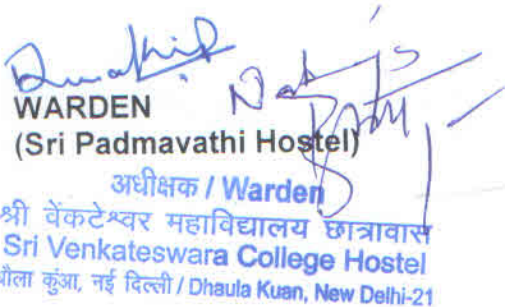 WARDEN
(Sri Padmavathi Hostel)
अधीक्षक / Warden
श्री वेंकटेश्वर महाविद्यालय छात्रावास
Sri Venkateswara College Hostel
धौला कुंआ, नई दिल्ली / Dhaula Kuan, New Delhi-21